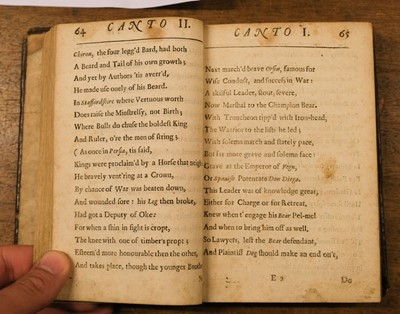 64 CANTO II.
Chiron, the four legg'd Bard, had both
A Beard and Tail of his own growth;
And yet by Authors 'tis averr'd,
He made use onely of his Beard.
In Staffordshire where Vertuous worth
Does raise the Minstrelsy, not Birth;
Where Bulls do chuse the boldest King
And Ruler, o're the men of string;
(As once in Persia, tis said,
Kings were proclaim'd by a Horse that neigh'd
He bravely vent'ring at a Crown,
By chance of War was beaten down,
And wounded sore: his Leg then broke,
Had got a Deputy of Oke:
For when a shin in fight is cropt,
The knee with one of timber's propt;
Esteem'd more honourable then the other,
And takes place, though the younger
CANTO I. 65
Next march'd brave Orsin, famous for
Wise Conduct, and success in War:
A skilful Leader, stout, severe,
Now Marshal to the Champion Bear.
With Truncheon tipp'd with Iron-head,
The Warrior to the lists he led;
With solemn march and stately pace,
But far more grave and solemn face:
Grave as the Emperor of Pegu,
Or Spanish Potentate Don Diego.
This Leader was of knowledge great,
Either for Charge or for Retreat.
Knew when t'engage his Bear Pel-mel
And when to bring him off as well.
So Lawyers, lest the Bear defendant,
And Plaintiff Dog should make an end on't,
E 9